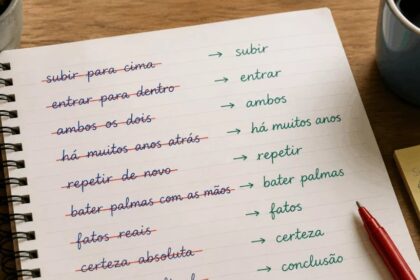 subir para cima → subir
entrar para dentro → entrar
ambos os dois → ambos
há muitos anos atrás → há muitos anos
repetir de novo → repetir
bater palmas com as mãos → bater palmas
fatos reais → fatos
certeza absoluta → certeza
→ conclusão